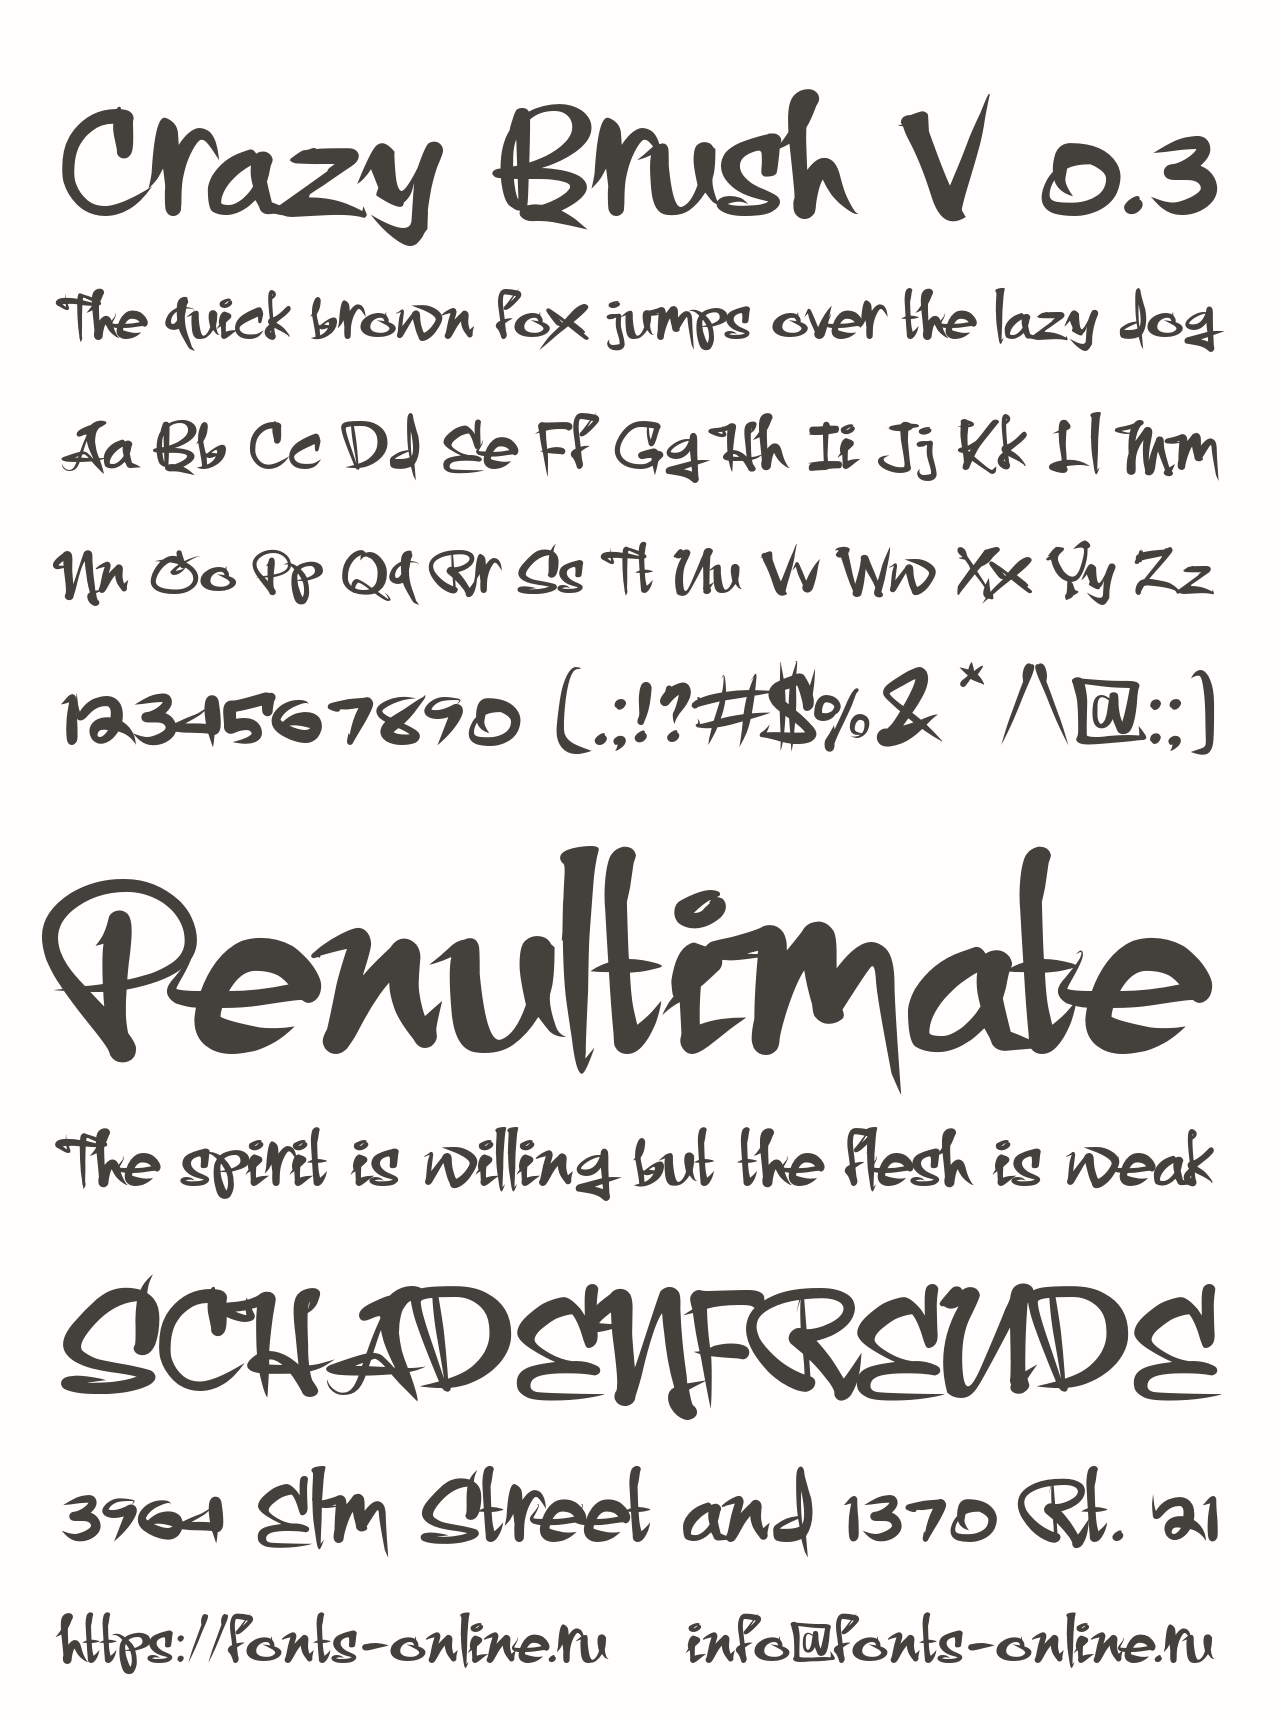 Crazy Brush V 0.3
The quick brown fox jumps over the lazy dog
Aa Bb Cc Dd Ee Ff Gg Hh Ii Jj Kk Ll Mm
Nn Oo Pp Qq Rr Ss Tt Uu Vv Ww Xx Yy Zz
1234567890 (.;!?#$%& * /\@:;)
Penultimate
The spirit is willing but the flesh is weak
SCHADENFREUDE
3964 Elm Street and 1370 Rt. 21
https://fonts-online.ru info@fonts-online.ru